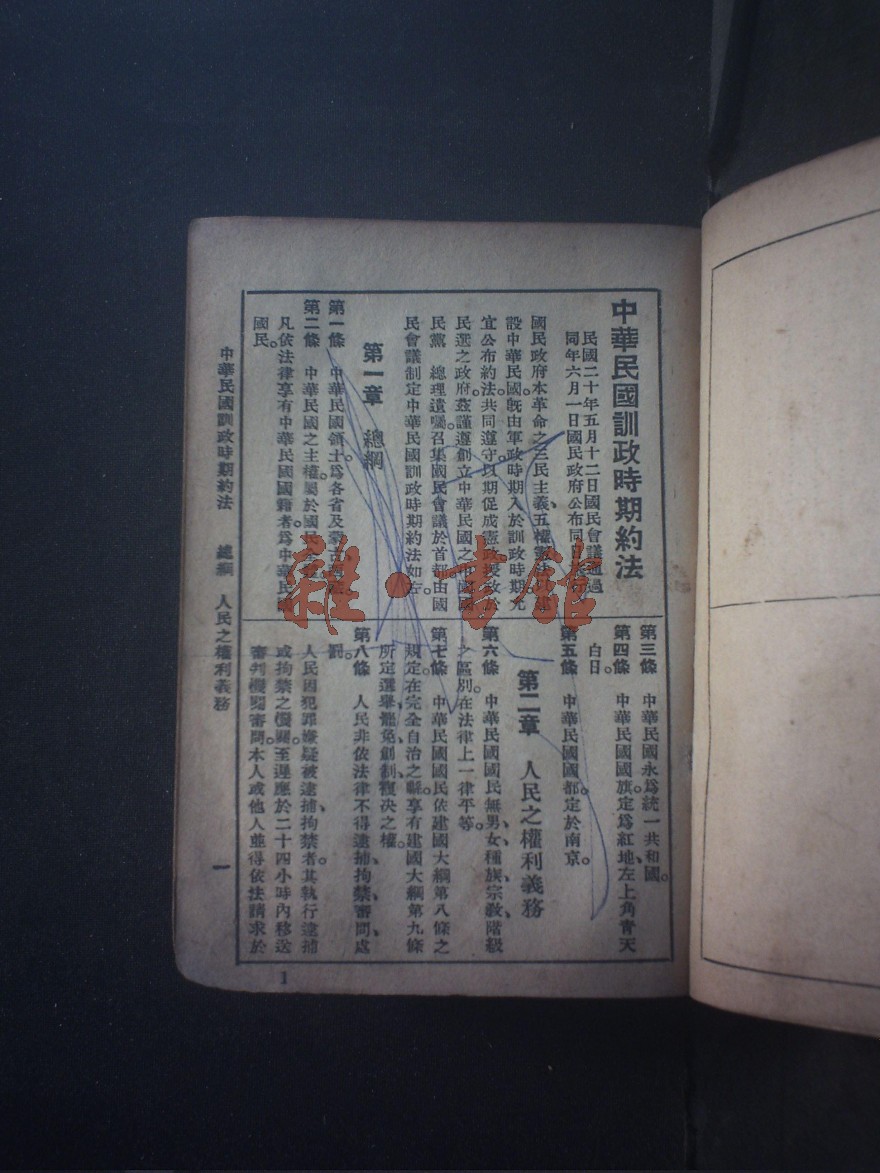 中華民國訓政時期約法
民國二十年五月十二日國民會議通過
同年六月一日國民政府公布同
國民政府本革命之三民主義、五權憲法以建
設中華民國。既由軍政時期入於訓政時期、允
宜公布約法。共同遵守、以期促成憲政、授政於
民選之政府。茲謹遵創立中華民國之中國國
民黨 總理遺囑。召集國民會議於首都、由國
民會議制定中華民國訓政時期約法如左。
第一章 總綱
第一條 中華民國領土爲各省及蒙古
第二條 中華民國之主權屬於國民全體。
凡依法律享有中華民國國籍者、爲中華民國
國民。
第三條 中華民國永爲統一共和國。
第四條 中華民國國旗、定爲紅地、左上角青天
白日。
第五條 中華民國國都定於南京。
第二章 人民之權利義務
第六條 中華民國國民、無男女、種族、宗教、階級
之區別。在法律上一律平等。
第七條 中華民國國民、依建國大綱第八條之
規定、在完全自治之縣、享有建國大綱第九條
所定選舉、罷免、創制、複决之權。
第八條 人民非依法律、不得逮捕、拘禁、審問、處
罰。
人民因犯罪嫌疑被逮捕、拘禁者。其執行逮捕
或拘禁之機關。至遲應於二十四小時內移送
審判機關審問。本人或他人並得依法請求於
中華民國訓政時期約法 總綱 人民之權利義務
一
1
雜·書館